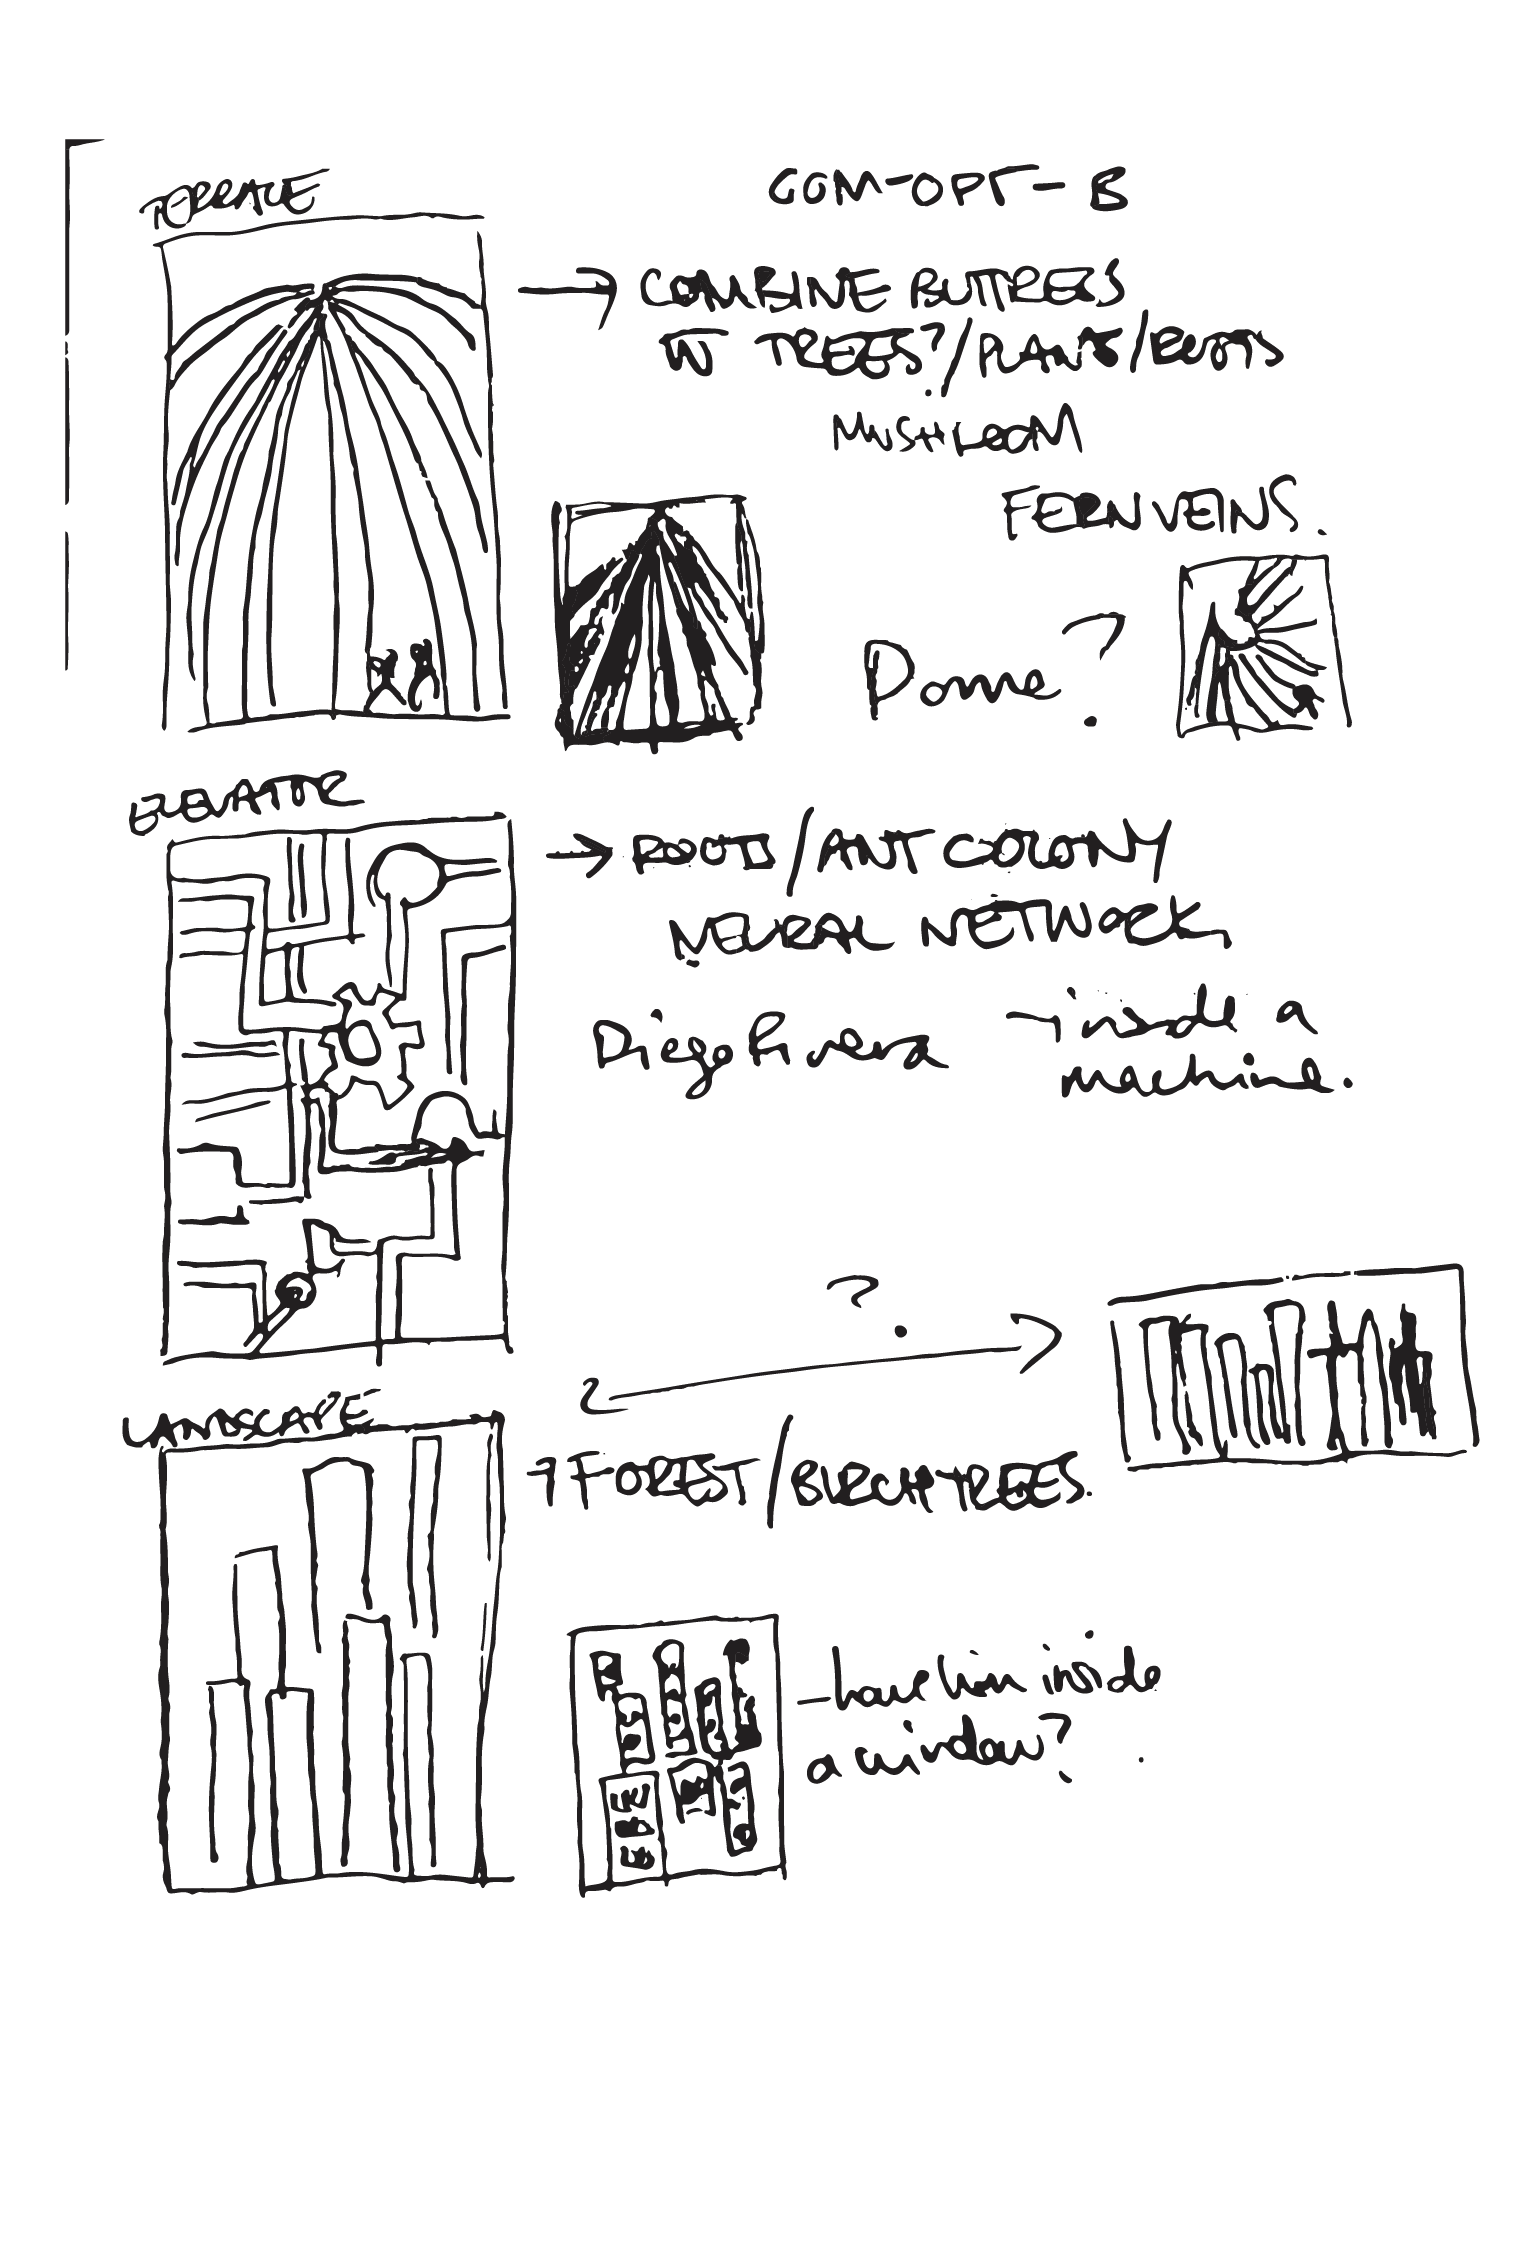 COM-OPT-B
TERRACE
COMBINE BUTTRESS
W TREES?/PLANTS/ROOTS
MUSHROOM
FERN VEINS.
Dome?
ELEVATOR
ROOTS/ANT COLONY
NEURAL NETWORK
Diego Rivera
- inside a
machine.
?
LANDSCAPE
FOREST/BIRCH TREES.
- have him inside
a window?